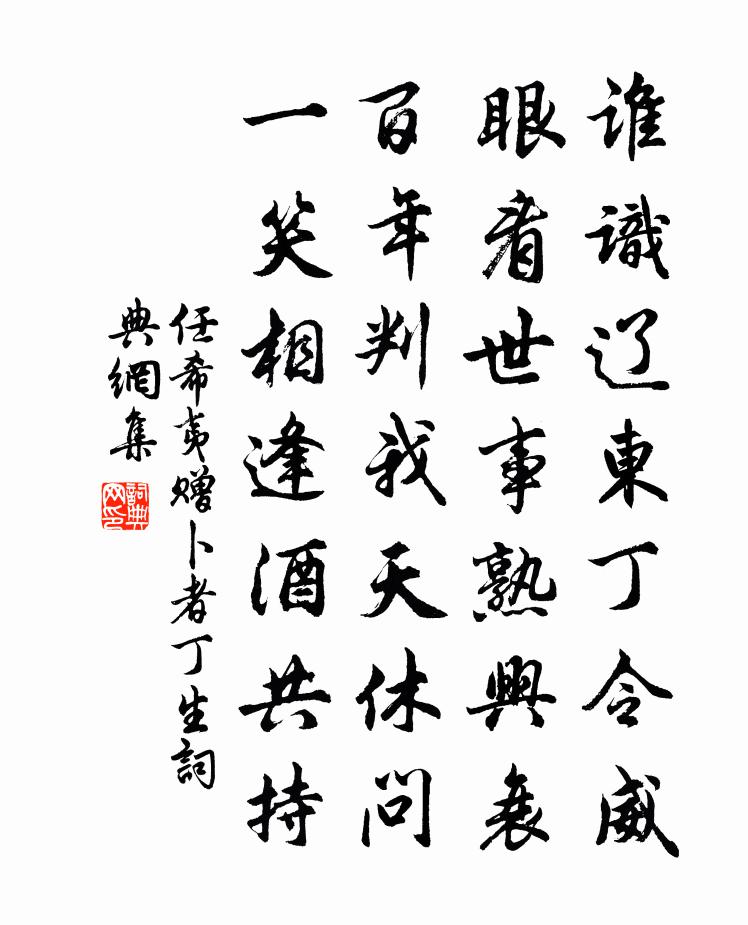 谁識辽東丁令威
眼看世事熟興衰
百年判我天休問
一笑相逢酒共持
任希夷赠卜者丁生詞
典網集
詞典网印